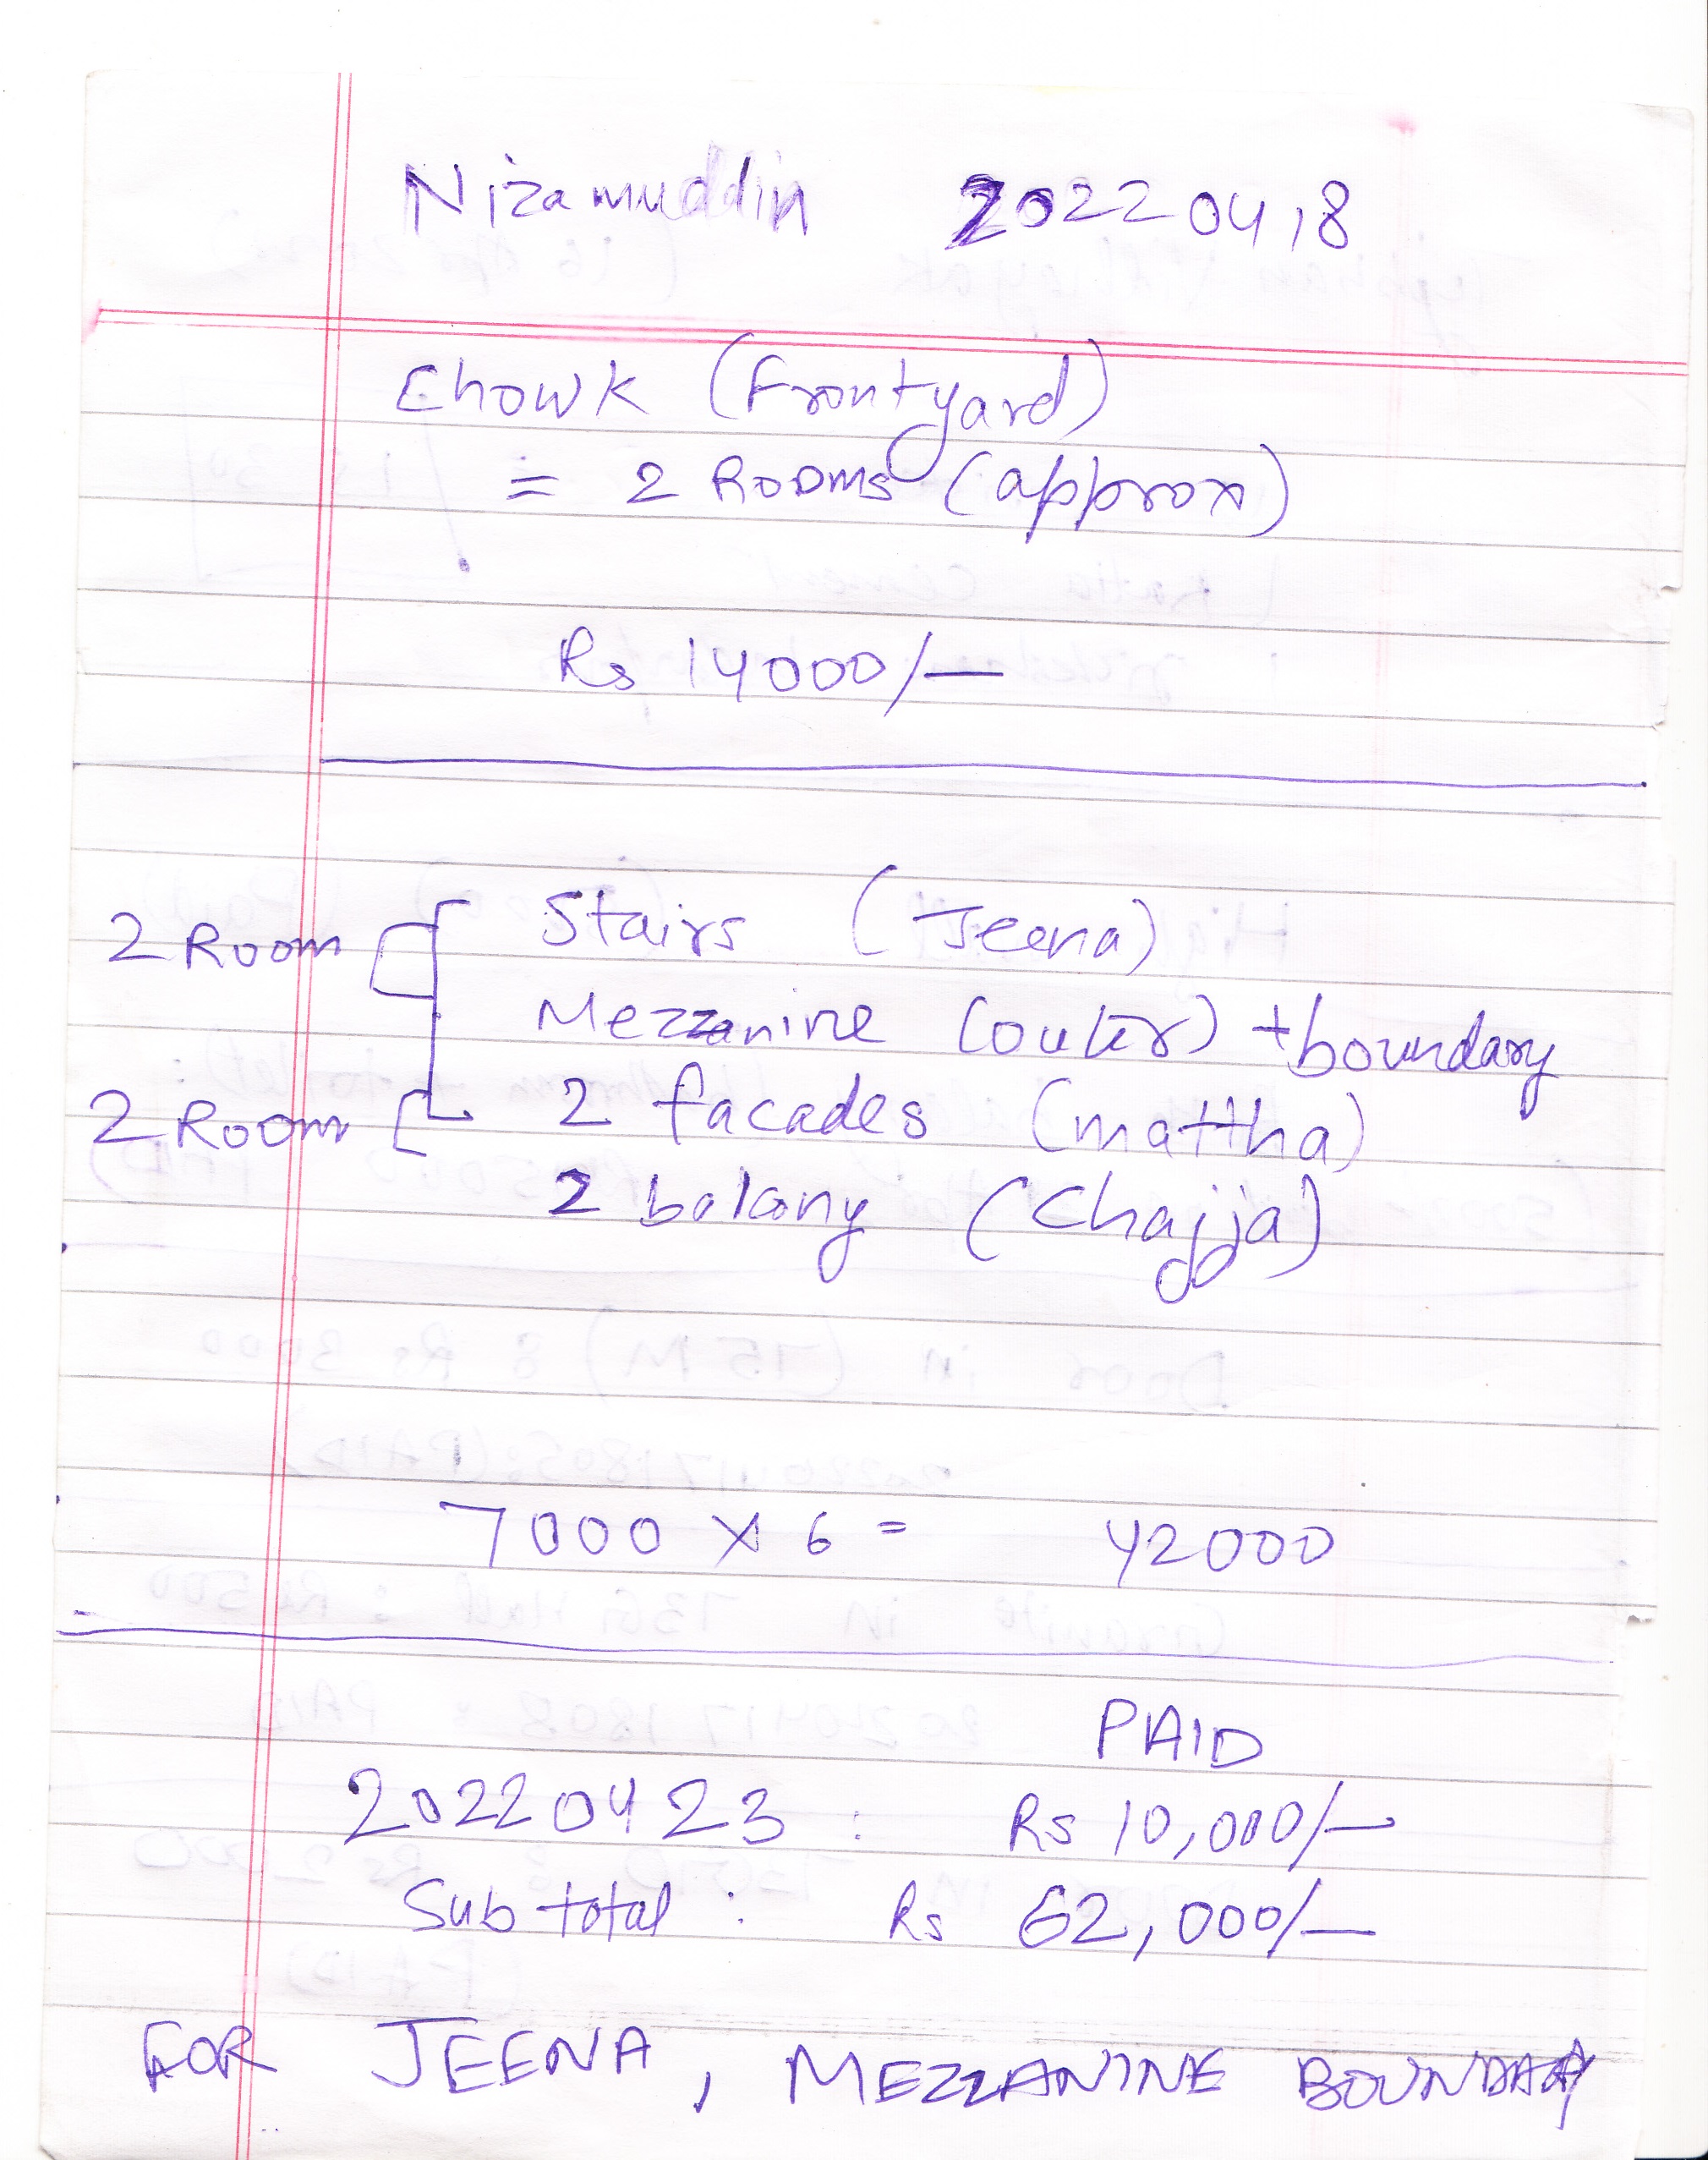 Nizamuddin 20220418
Chowk (Frontyard)
= 2 Rooms (approx)
Rs 14000/-
2 Room Stairs (Jeena)
Mezzanine (outer) + boundary
2 Room 2 facades (mattha)
2 balcony (Chajja)
7000 x 6 = 42000
PAID
20220423 : Rs 10,000/-
Sub total : Rs 62,000/-
FOR JEENA, MEZZANINE BOUNDARY